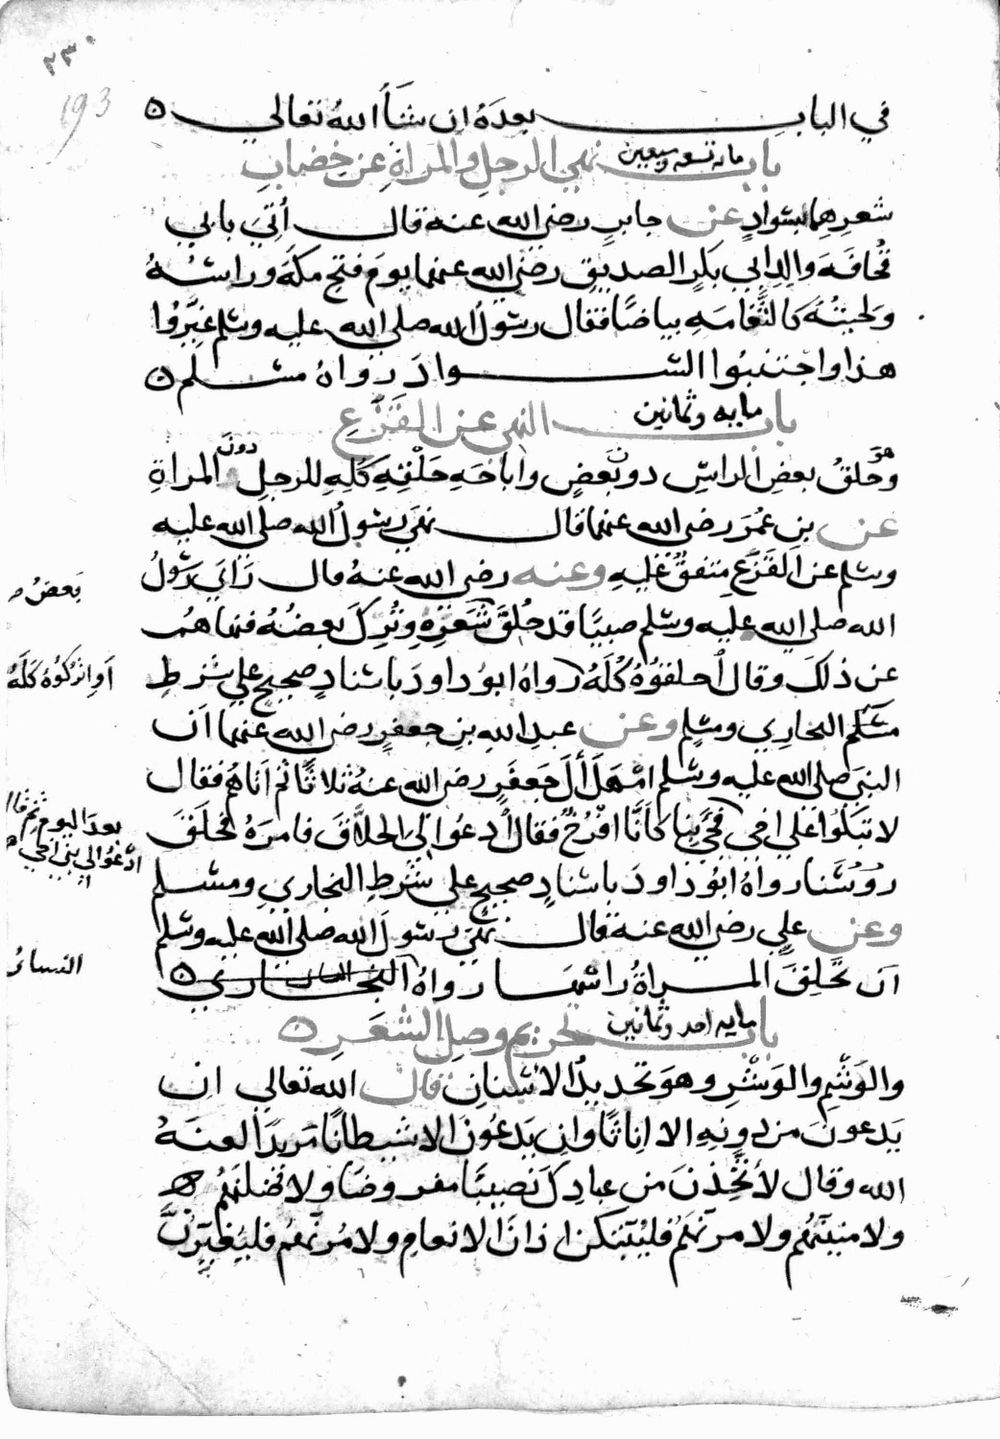 ٢٣٠
193
في الباب بعدَهُ ان شَأَ اللهُ تعالي ه
باب مايه تسعه وسبعين نهي الرجلِ والمَراةِ عن خِضابِ
شعرِهِما بسَوادٍ عن جابرٍ رضي الله عنه قال أُتِيَ بابي
قُحافَةَ والِدِ ابي بَكرٍ الصديق رضي الله عنهما يومَ فتحِ مكةَ وراسُهُ
ولحيتُهُ كالثَّغامَةِ بياضًا فقال رسُولُ الله صلي الله عليه وسَلم غيِّرُوا
هذا واجتنبُوا السَّوادَ رَواهُ مسلم ه
باب مايه وثمانين النهي عن القَزَعِ
وهو حلقُ بعضِ الراسِ دون بعضٍ واباحَةِ حَلْقِهِ كُلِّهِ للرجلِ دونَ المراةِ
عن بن عُمَرَ رضي الله عنهما قال نهَي رسُولُ الله صلي الله عليه
وسَلم عن القَزَعِ متفقٌ عَليهِ وعنه رضي الله عنهُ قال رَاَي رَسُولُ
الله صلي الله عليه وسَلم صبيًا قد حُلِقَ شَعَرِهِ وتُرِكَ بعضُهُ فنهاهُم
بَعضُ
عن ذلكَ وقال احلقُوهُ كُلَّهُ رواهُ ابو داودَ باسنادٍ صحيحٍ علي شرطِ
اَوِ اتركُوهُ كَلَهُ
مسَلم البخارِي ومسْلِمٍ وعن عبدِ اللهِ بنِ جعفرٍ رضي الله عنهما اَن
النبيَ صلي الله عليه وسَلم امْهَلَ اَلَ جَعفَرٍ رضي الله عنهُ ثلاثًا ثم اَتاهُم فقال
لا تبكُوا عَلي اخي فجيَ بِنا كاَنَّا افرُخٌ فقال اُدعُوا لِي الحلاَّقَ فامرَهُ فحلَقَ
بعدَ اليوم ثم قال
ادْعُوا لي بني اخي
رؤسَنا رواهُ ابُو داودَ باسنادٍ صحيحٍ علي شَرطِ البخاري ومسْلم
وعن علي رضي الله عنه قال نَهَي رسُولُ الله صلي الله عليه وسَلم
اَن تَحْلِقَ المراةُ راسَها رواهُ البخاري ه
النسائ
باب مايه احد وثمانين تحريم وصلِ الشعَرِ ه
والوَشْمِ والوَشْرِ وهوَ تحديدُ الاسْنانِ قال الله تعالي ان
يَدعونَ من دونِهِ الا اِناثًا وان يَدعُونَ الا شيطانًا مَريدًا لعنَهُ
الله وقال لاَتَّخِذنَ من عبادِكَ نصيبًا مفروضًا ولاضلنهُم
ولامنيَنَّهُم ولامرنَهُم فليُبَتِّكنَ اذانَ الانعامِ ولامُرنَّهُم فليُغَيِّرُنَّ